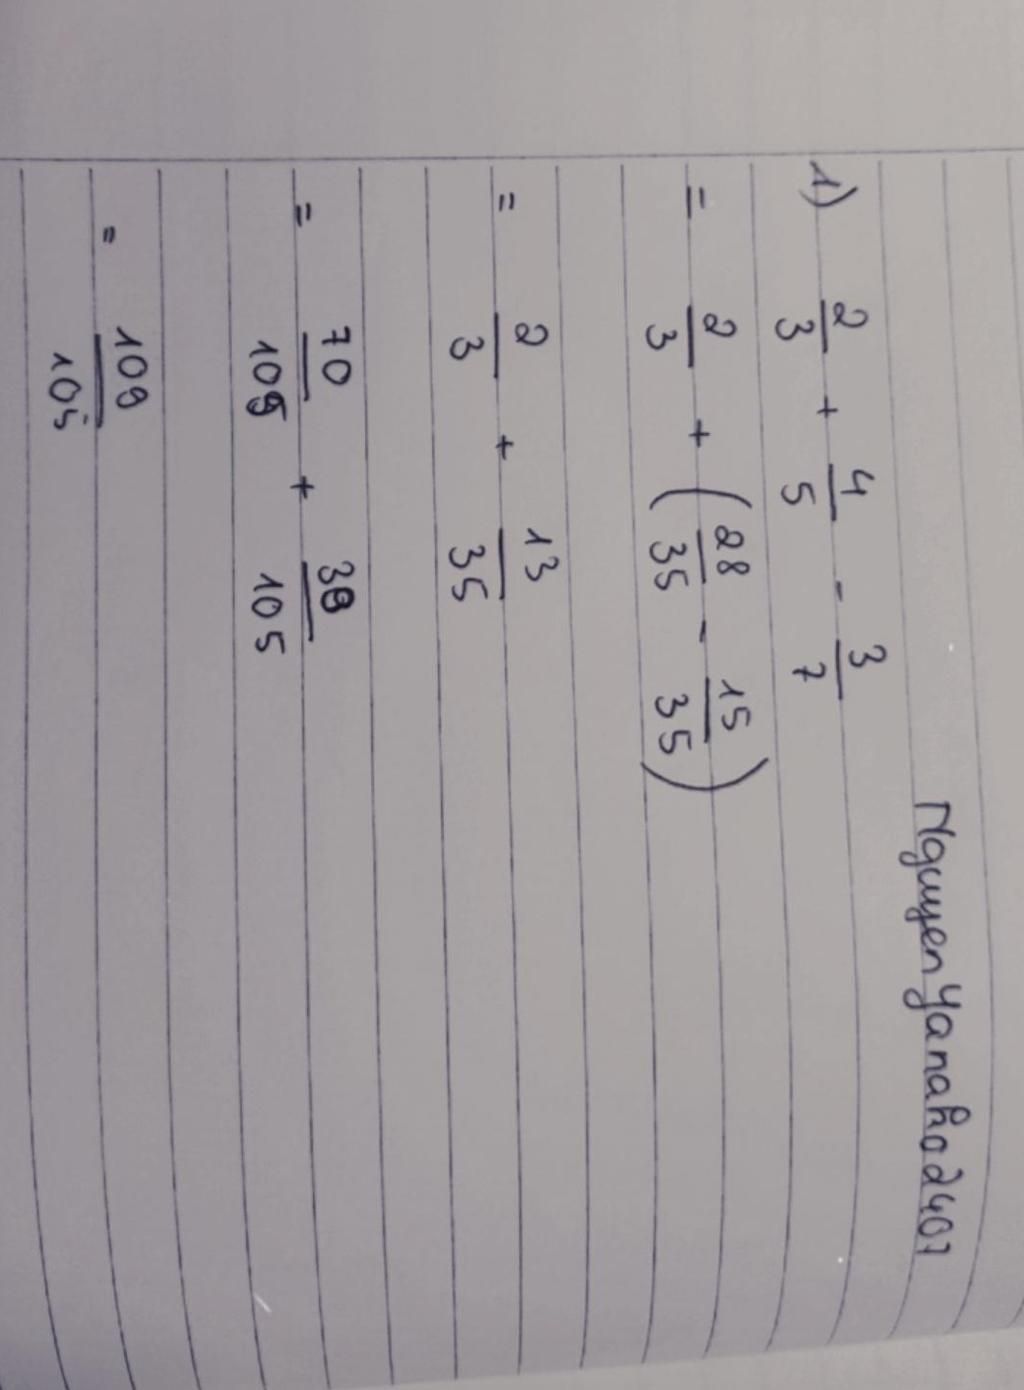 NguyenYanako2401
1) 2/3 + 4/5 - 3/7
= 2/3 + (28/35 - 15/35)
= 2/3 + 13/35
= 70/105 + 39/105
= 109/105